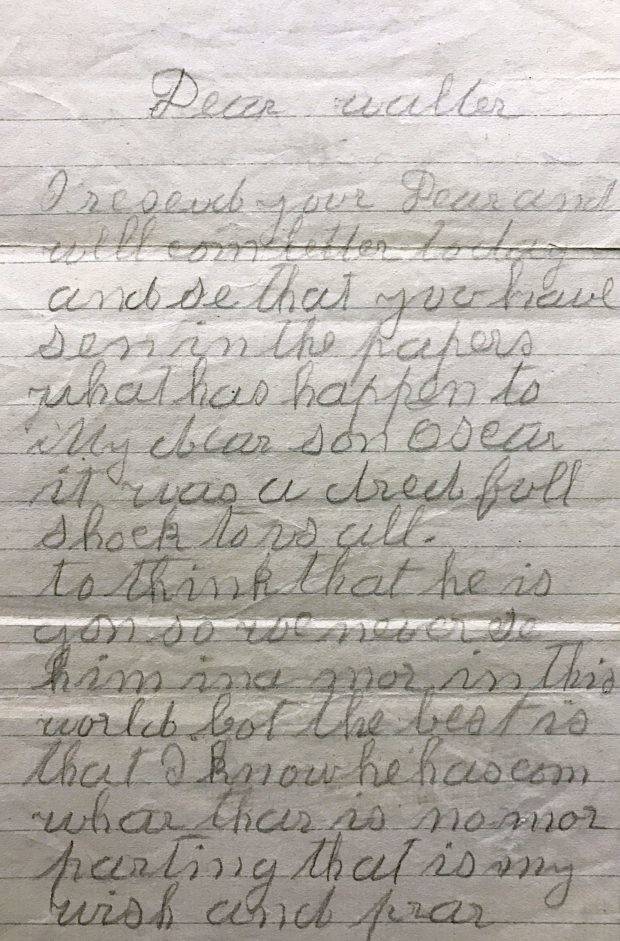 Dear walter
I reseud your Dear and
well com letter today
and se that you have
sen in the papers
what has happen to
My dear son Oscar
it was a dredfull
shock to us all.
to think that he is
gon so we never se
him ina mor in this
world bot the best is
that I know he has com
whar thar is no mor
parting that is my
wish and prar